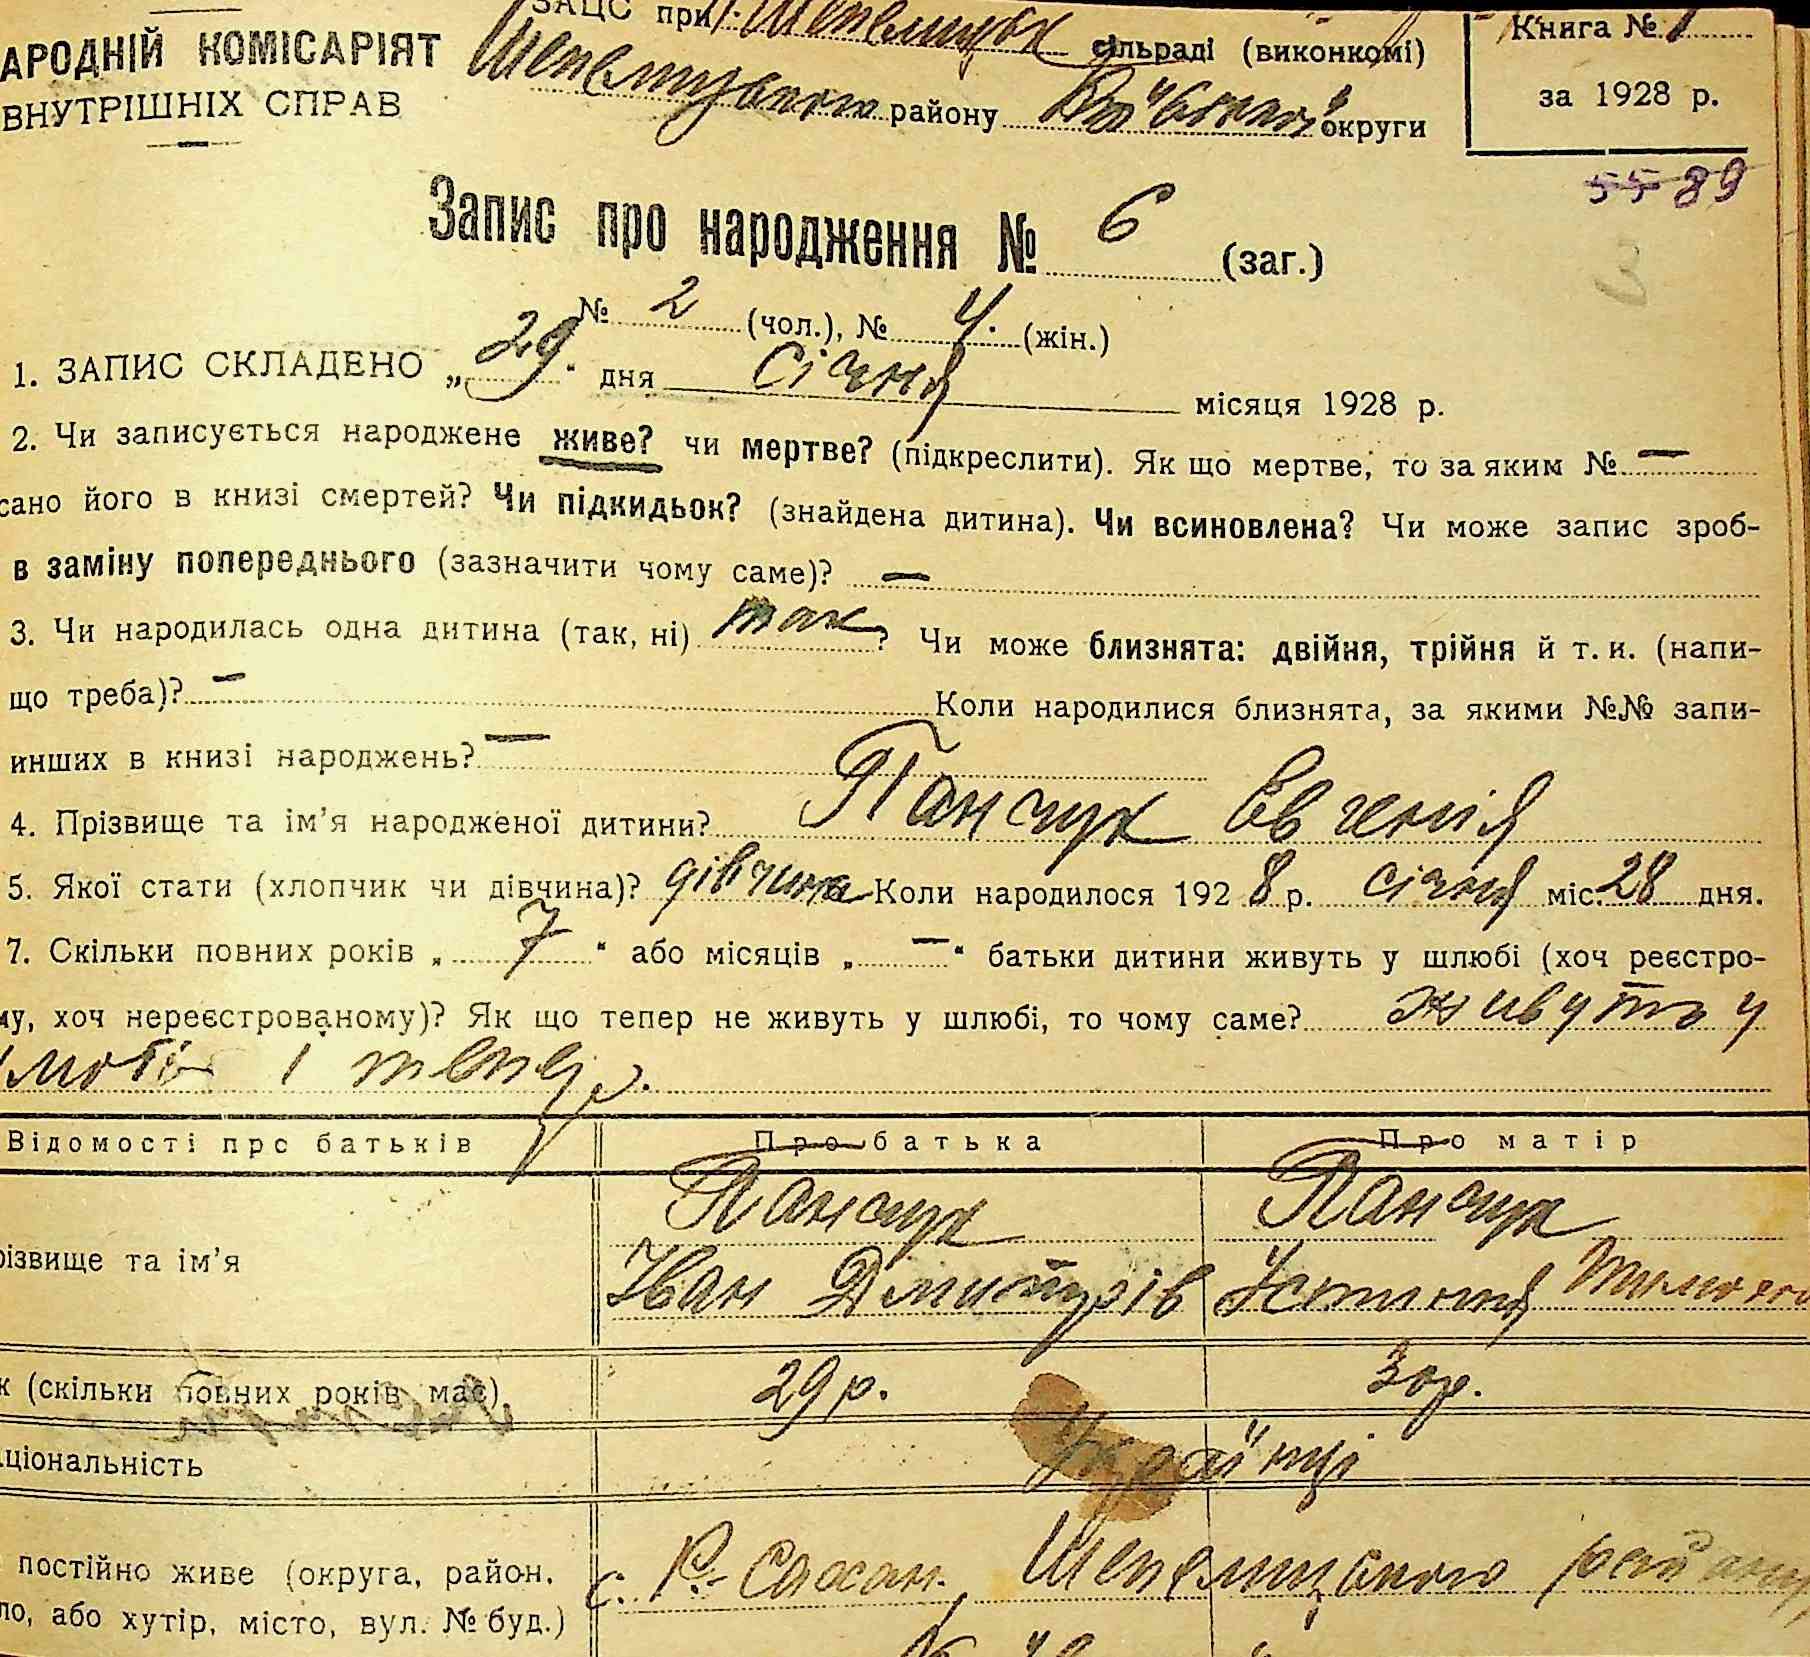 ЗАЦС при Шепелицьк сільраді (виконкомі)
АРОДНІЙ КОМІСАРІЯТ
ВНУТРІШНІХ СПРАВ
Шепелицького району Київської округи
Книга № 1
за 1928 р.
55 89
Запис про народження № 6 (заг.)
№ 2 (чол.), № 4. (жін.)
1. ЗАПИС СКЛАДЕНО „29“ дня січня місяця 1928 р.
2. Чи записується народжене живе? чи мертве? (підкреслити). Як що мертве, то за яким № —
сано його в книзі смертей? Чи підкидьок? (знайдена дитина). Чи всиновлена? Чи може запис зроб-
в заміну попереднього (зазначити чому саме)? —
3. Чи народилась одна дитина (так, ні) так? Чи може близнята: двійня, трійня й т. и. (напи-
що треба)? — Коли народилися близнята, за якими №№ запи-
инших в книзі народжень? —
4. Прізвище та ім’я народженої дитини? Панчук Євгенія
5. Якої стати (хлопчик чи дівчина)? дівчина Коли народилося 1928 р. січня міс. 28 дня.
7. Скільки повних років „7“ або місяців „—“ батьки дитини живуть у шлюбі (хоч реєстро-
му, хоч нереєстрованому)? Як що тепер не живуть у шлюбі, то чому саме? живуть у
шлюбі і тепер.
Відомості про батьків Про батька Про матір
Панчук Панчук
різвище та ім’я Іван Дмитрів Устиння
к (скільки повних років має) 29 р. 30 р.
ціональність Українці
постійно живе (округа, район, с. Р.-Сахан. Шепелицького району,
ло, або хутір, місто, вул. № буд.)